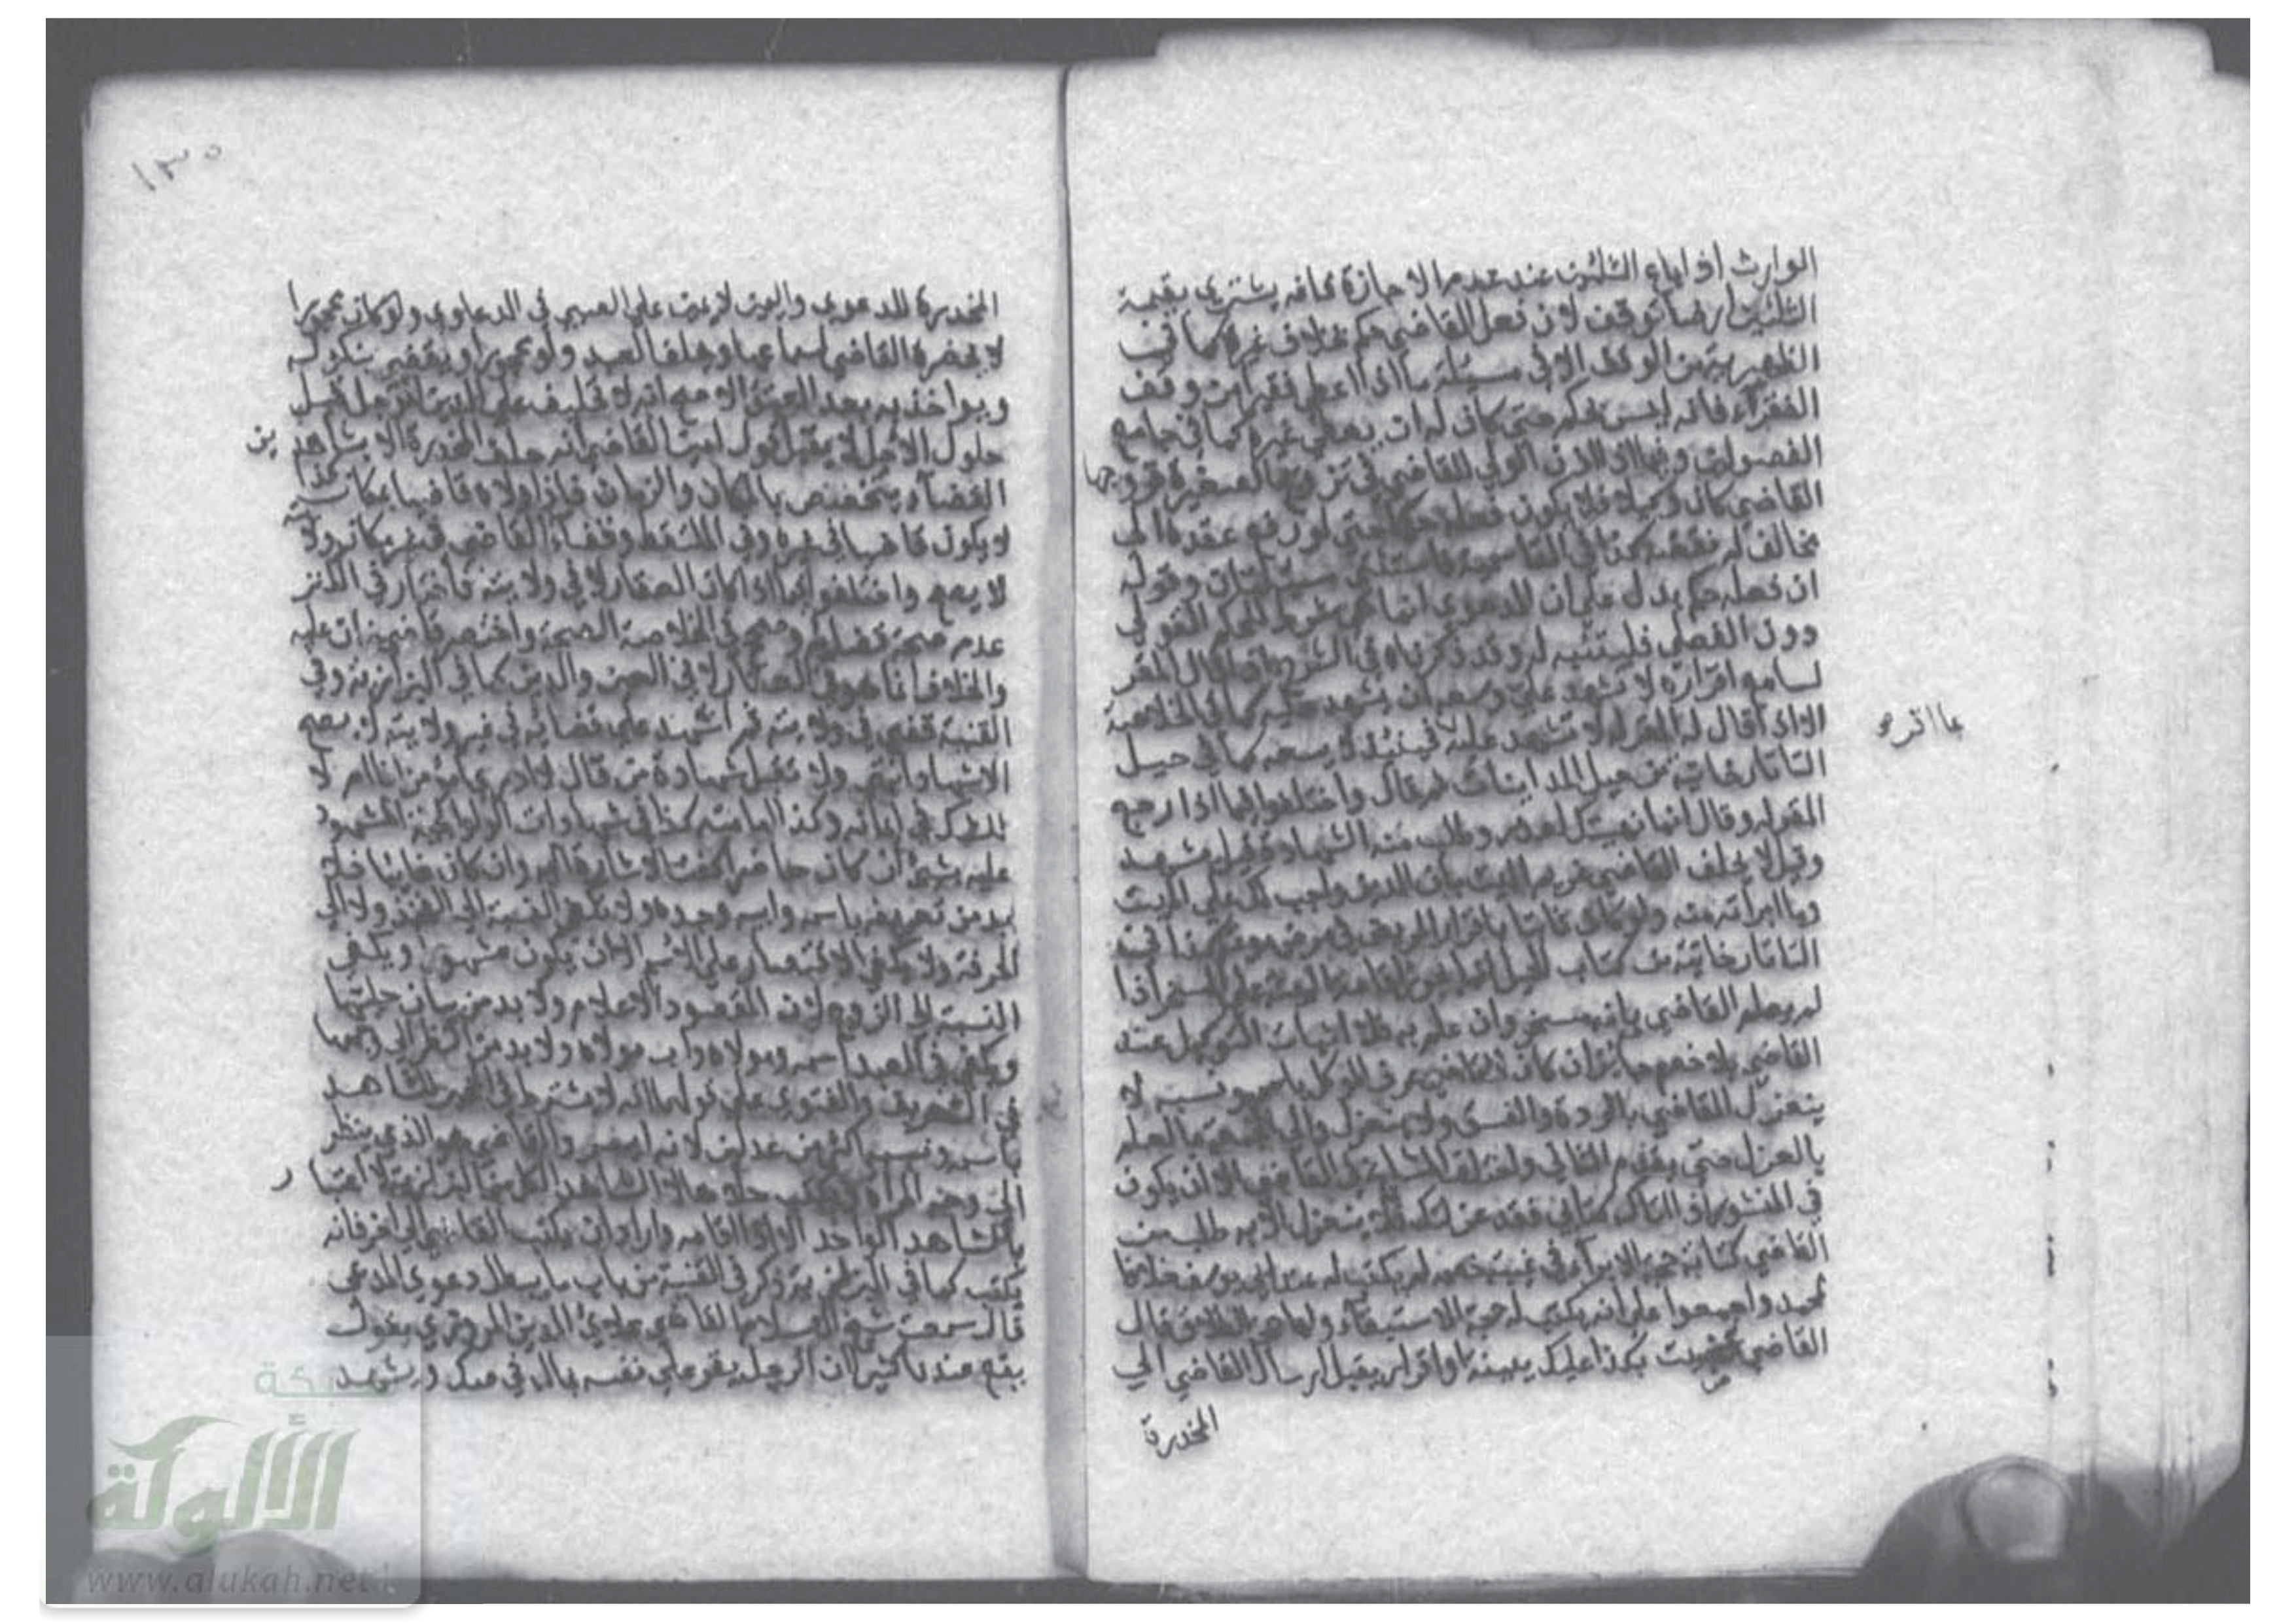 الوارث اذا باع الثلثين عند عدم الاجازة فانه يشتري بقيمة
الثلثين ارضا توقف لان فعل القاضي حكم بخلاف غيره كما في
الظهيرية من الوقف الا في مسئلة ما اذا اعطى فقيرا من وقف
الفقراء فانه ليس بحكم حتى كان له ان يعطي غيره كما في جامع
الفصولين وفيما اذا اذن الولي للقاضي في تزويج الصغيرة فزوجها
القاضي كان وكيلا فلا يكون فعله حكما حتى لو رفع عقده الى
مخالف له نقضه كذا في القاسمية فاستثني مسئلتان وقوله
ان فعله حكم يدل على ان الدعوى انما هي شرط للحكم القولي
دون الفعلي فليتنبه له وقد ذكرناه في الشرح اذا قال المقر
لسامع اقراره لا تشهد علي وسعه ان يشهد عليه كما في الخلاصة
الا اذا قال له المقر له لا تشهد عليه بما اقر به فحينئذ لا يسعه كما في حيل
التاتارخانية من حيل المداينات ثم قال واختلفوا فيما اذا رجع
المقر له وقال انما نهيتك لعذر وطلب منه الشهادة قيل يشهد
وقيل لا يحلف القاضي غريم الميت بان الدين واجب لك على الميت
وما ابرأته منه ولو كان ثابتا باقرار المريض في مرض موته كذا في
التاتارخانية من كتاب الحيل
لم يعلم القاضي بانه مسخر وان علم به فلا اثبات التوكيل عند
القاضي بلا خصم جائز ان كان القاضي يعرف الموكل باسمه ونسبه لا
ينعزل القاضي بالردة والفسق ولا ينعزل والي الجمعة بالعلم
بالعزل حتى يقدم الثاني الا ان يكون
في المنشور اذا اتاك كتابي فقد عزلتك فلا ينعزل الا به طلب من
القاضي كتابة حجة الابراء في غيبة خصمه لم يكتب له عند ابي يوسف خلافا
لمحمد واجمعوا على انه يكتب له حجة الاستيفاء ولها حجة الطلاق قال
القاضي بكذا عليك ببينة او اقرار يقبل ارسال القاضي الى
المخدرة
١٣٥
المخدرة للدعوى واليمين لا يمين على الصبي في الدعاوي ولو كان محجورا
لا يحضره القاضي لسماعها ويحلف العبد ولو محجورا ويقضي بنكوله
ويواخذ به بعد العتق الاصح انه لا تحليف على الدين المؤجل قبل
حلول الاجل لا يقبل قول امين القاضي انه حلف المخدرة الا بشاهدين
القضاء يتخصص بالمكان والزمان فاذا ولاه قاضيا بمكان كذا
لا يكون قاضيا في غيره وفي الملتقط وقضاء القاضي في غير مكان ولايته
لا يصح واختلفوا فيما اذا كان العقار لا في ولايته فاختار في الكنز
عدم صحة قضائه وصحح في الخلاصة الصحة واختصر قاضيخان عليه
والخلاف انما هو في العقار لا في العين والدين كما في البزازية وفي
القنية قضى في ولايته ثم اشهد على قضائه في غير ولايته لا يصح
الاشهاد انتهى ولا تقبل شهادة من قال لا ادري امؤمن انا ام لا
للشك في ايمانه وكذا امامته كذا في شهادات الولوالجية المشهود
عليه بشيء ان كان حاضرا كفت الاشارة اليه وان كان غائبا فلا
بد من تعريفه باسمه واسم ابيه وجده ولا تكفي النسبة الى الفخذ ولا الى
الحرفة ولا يكفي الاقتصار على الاسم الا ان يكون مشهورا ويكفي
النسبة الى الزوج لان المقصود الاعلام ولا بد من بيان حليتها
ويكفي في العبد اسمه ومولاه واب مولاه ولا بد من النظر الى وجهها
في التعريف والفتوى على قولهما انه لا يشترط في المخبر للشاهد
باسمه ونسبه اكثر من عدلين لانه ايسر والقاضي هو الذي ينظر
الى وجه المرأة ويكتب حلاها لا الشاهد الكل من البزازية لا اعتبار
بالشاهد الواحد الا اذا اقامه واراد ان يكتب القاضي الى اخر فانه
يكتب كما في البزازية ذكر في القنية من باب ما يبطل دعوى المدعي
قال سمعت شيخ الاسلام القاضي علاء الدين المروزي يقول
يقع عندنا كثيرا ان الرجل يقر على نفسه بمال في صك ويشهد
شبكة
الألوكة
www.alukah.net